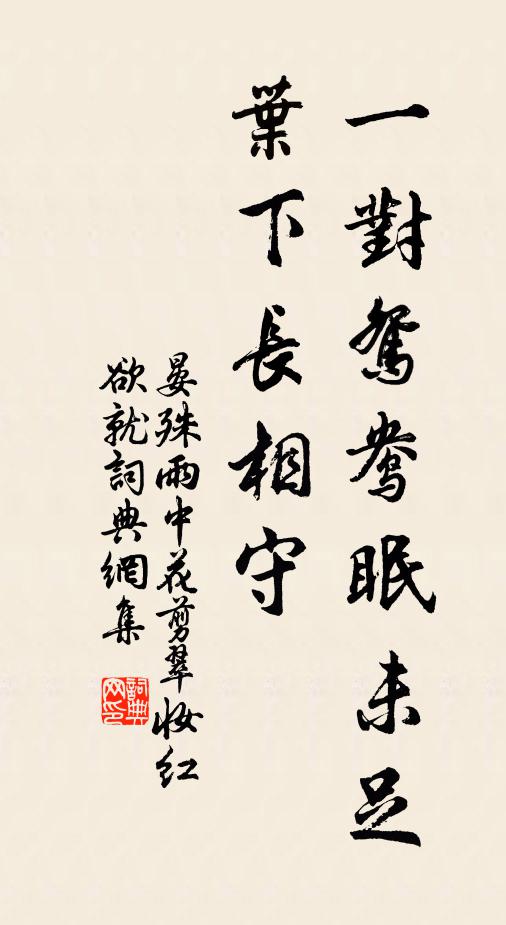 一對鴛鴦眠未足
葉下長相守
晏殊雨中花剪翠妝紅
欲就詞典網集
詞典
网印